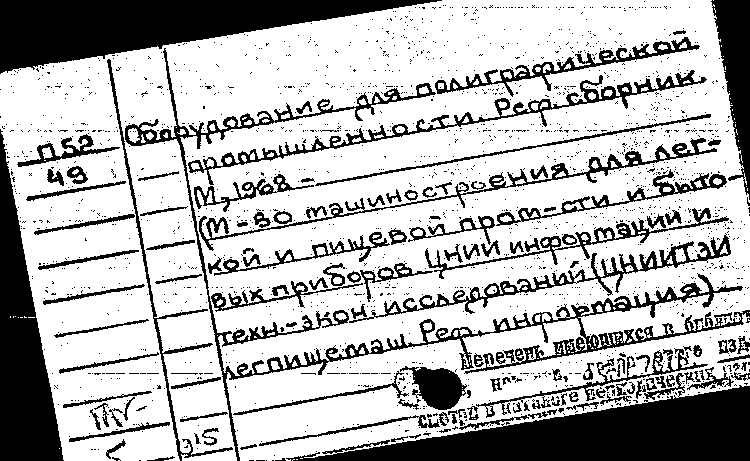 Оборудование для полиграфической
П52
49
промышленности. Реф. сборник.
М, 1968 -
(М-во машиностроения для лег-
кой и пищевой пром-сти и быто-
вых приборов. ЦНИИ информации и
техн.-экон. исследований (ЦНИИТЭИ
легпищемаш. Реф. информация)
Перечень имеющихся в библиот
изд.
смотри в каталоге периодических
315